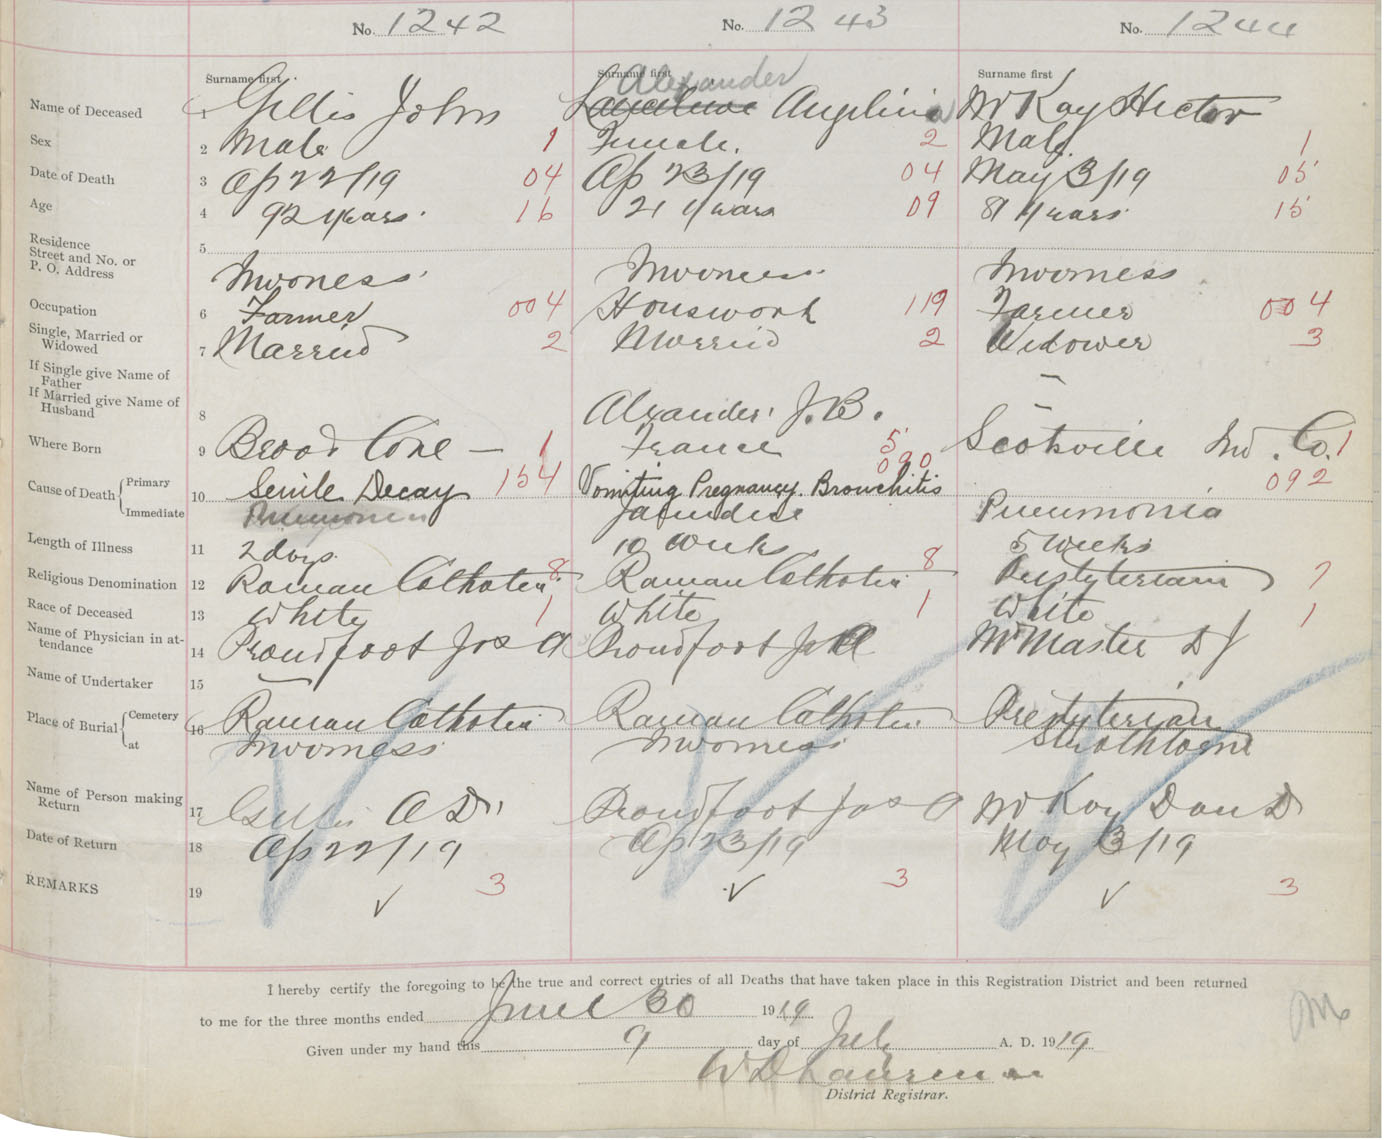 No. 1242 No. 1243 No. 1244
Surname first Surname first Surname first
Alexander
Name of Deceased 1 Gillis John Angelina McKay Hector
Sex 2 Male 1 Female. 2 Male 1
Date of Death 3 Ap 22/19 04 Ap 23/19 04 May 3/19 05
Age 4 92 years. 16 21 years 09 81 years 15
Residence
Street and No. or
P. O. Address
5 Inverness Inverness Inverness
Occupation 6 Farmer 004 Housework 119 Farmer 004
Single, Married or
Widowed
7 Married 2 Married 2 Widower 3
If Single give Name of
Father
If Married give Name of
Husband
8 Alexander J. B.
Where Born 9 Broad Cove — 1 France 5 Scotsville Inv. Co. 1
Cause of Death { Primary 10 Senile Decay 154 Vomiting Pregnancy. Bronchitis 090 092
Immediate Pneumonia Jaundice Pneumonia
Length of Illness 11 2 days 10 weeks 5 weeks
Religious Denomination 12 Roman Catholic 8 Roman Catholic 8 Presbyterian 7
Race of Deceased 13 White 1 White 1 White 1
Name of Physician in at-
tendance
14 Proudfoot Jos A Proudfoot Jos A McMaster D J
Name of Undertaker 15
Place of Burial { Cemetery 16 Roman Catholic Roman Catholic Presbyterian
at Inverness Inverness Strathlorne
Name of Person making
Return
17 Gillis A D. Proudfoot Jos A McKay Dan D
Date of Return 18 Ap 22/19 Ap 23/19 May 3/19
REMARKS 19 3 3 3
I hereby certify the foregoing to be the true and correct entries of all Deaths that have taken place in this Registration District and been returned
to me for the three months ended June 30 1919
Given under my hand this 9 day of July A. D. 1919
W D Lawrence
District Registrar.